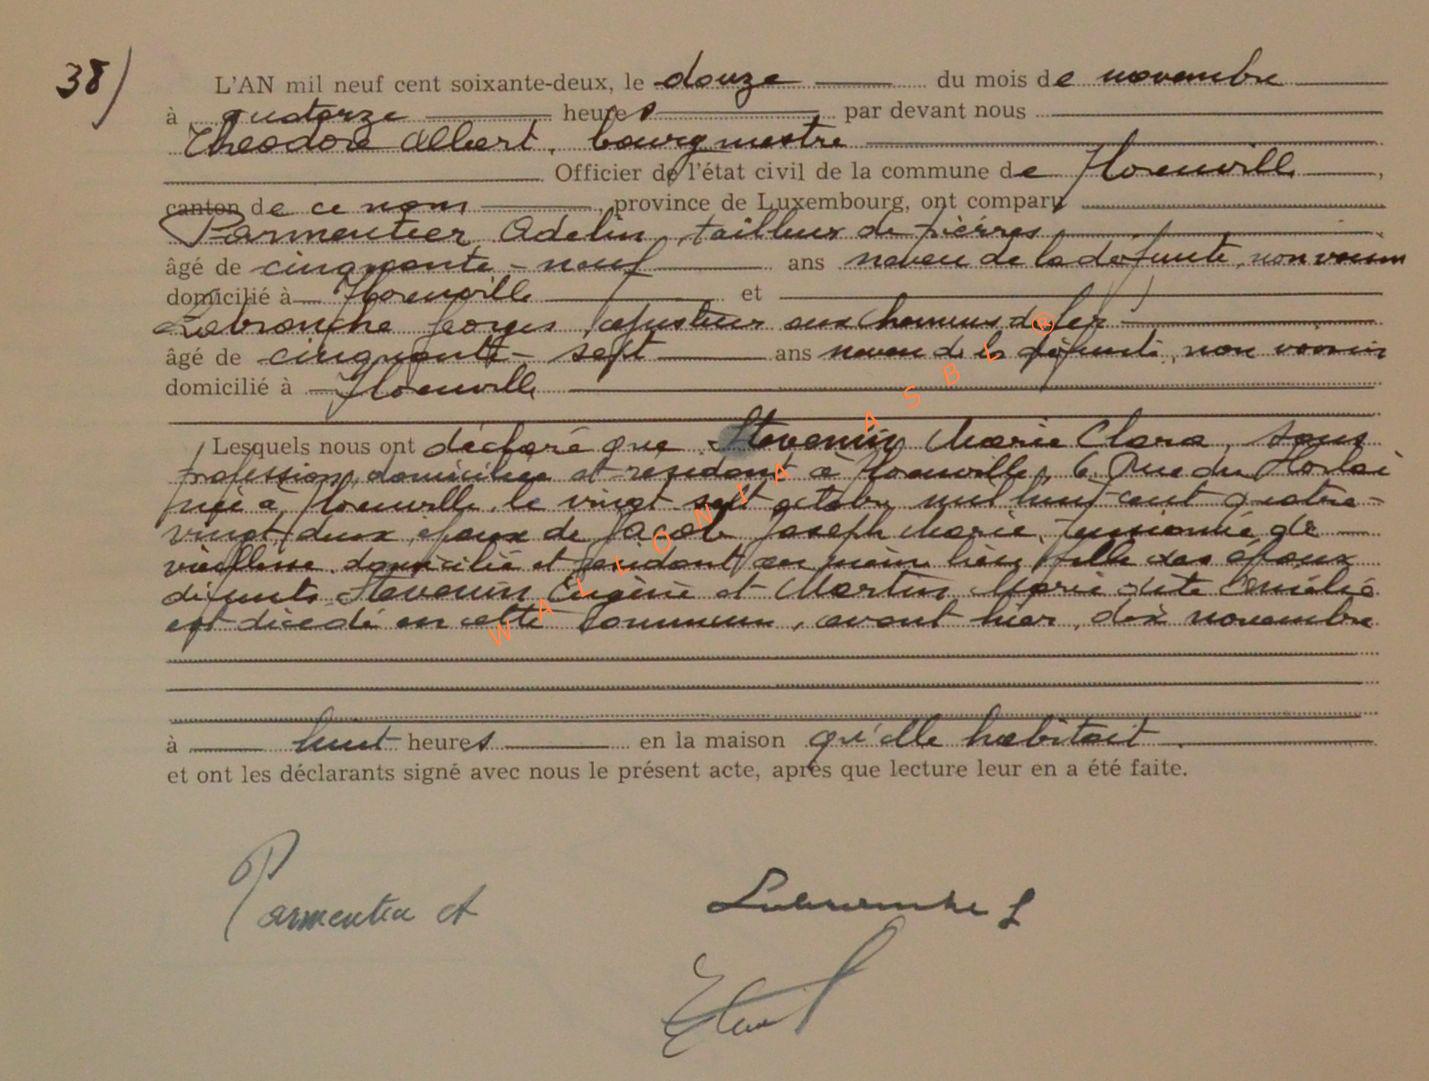 38)
L'AN mil neuf cent soixante-deux, le douze du mois de novembre
à quatorze heures par devant nous
Théodore Albert, bourgmestre
Officier de l'état civil de la commune de Florenville,
canton de ce nom, province de Luxembourg, ont comparu
Parmentier Adelin, tailleur de pierres
âgé de cinquante-neuf ans neveu de la défunte, non voisin
domicilié à Florenville et
Labranche Georges, ajusteur aux chemins de fer
âgé de cinquante-sept ans neveu de la défunte, non voisin
domicilié à Florenville
Lesquels nous ont déclaré que Stevenin Marie Clara, sans
profession, domiciliée et résidant à Florenville, 6, Rue du
née à Florenville, le vingt sept octobre mil huit cent quatre-
vingt deux, épouse de Jacob Joseph Marie, pensionné de
vieillesse, domicilié et résidant au même lieu, fille des époux
défunts Stevenin Eugène et Martin Marie dite
est décédé en cette commune, avant hier, dix novembre
à huit heures en la maison qu'elle habitait.
et ont les déclarants signé avec nous le présent acte, après que lecture leur en a été faite.
Parmentier A
Labranche G
WALLONIA ASBL ®